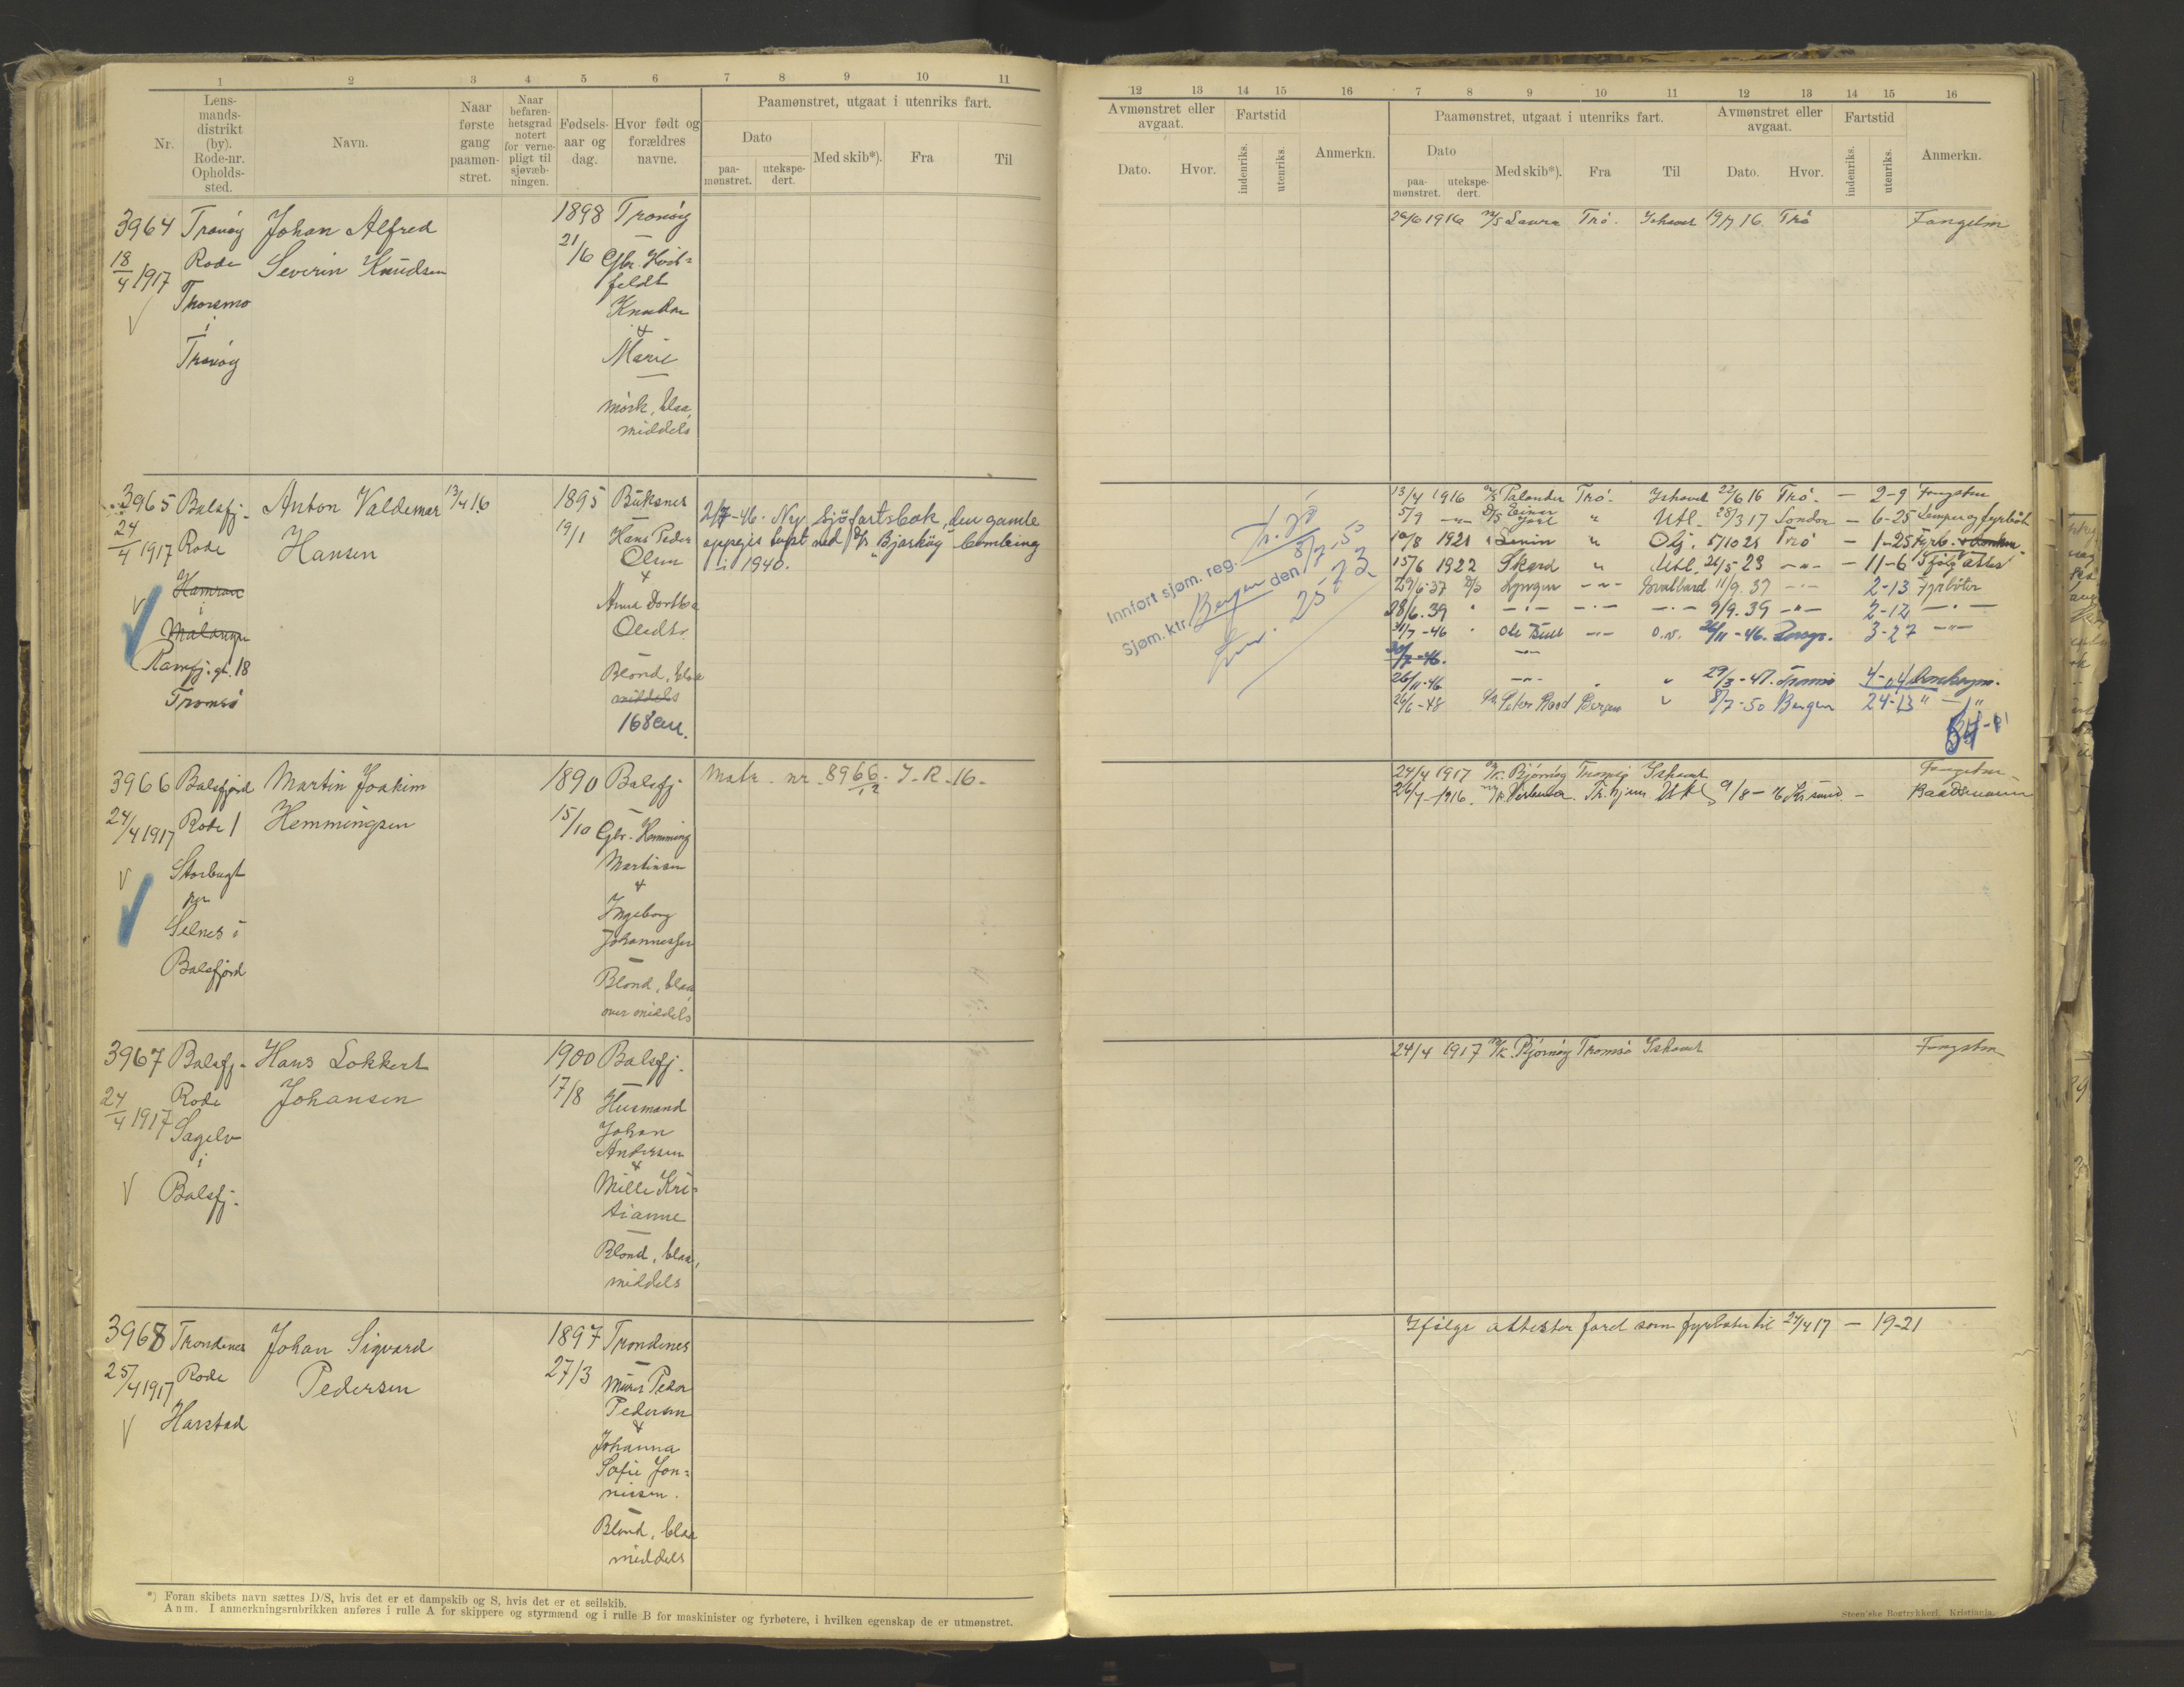 1 2 3 4 5 6 7 8 9 10 11
Nr.
Lens-
mands-
distrikt
(by).
Rode-nr.
Opholds-
sted.
Navn.
Naar
første
gang
paamøn-
stret.
Naar
befaren-
hetsgrad
notert
for verne-
pligt til
sjøvæb-
ningen.
Fødsels-
aar og
dag.
Hvor født og
forældres
navne.
Paamønstret, utgaat i utenriks fart.
Dato
paa-
mønstret.
utekspe-
dert.
Med skib*).
Fra
Til
3964 Tranöy Johan Alfred 1898 Tranöy
18/4 1917 Rode Severin Knudsen 21/6 Gbr. Hvit=
Thorsmo feldt
i Knudsen
Tranöy &
Marie
mörk, blaa,
middels
3965 Balsfj. Anton Valdemar 13/4 16 1895 Buksnes
24/4 1917 Rode Hansen 19/1 Hans Peder
Hamran Olsen
i &
Malangen Anna Dorthea
Ramfj. gt. 18 Olsdtr.
Tromsö Blond, blaa
middels
168 cm.
2/7-46. Ny Sjöfartsbok, den gamle
oppgis tapt ved D/S "Bjarköy" bombing
i 1940.
3966 Balsfjord Martin Joakim 1890 Balsfj
24/4 1917 Rode 1 Hemmingsen 15/10 Gbr. Hemming
Storbugt Martinsen
pr. &
Selnes i Ingeborg
Balsfjord Johannesen
Blond, blaa,
over middels
Matr. nr. 8966/12 - I. R. 16-
3967 Balsfj. Hans Lokkert 1900 Balsfj.
24/4 1917 Rode Johansen 17/8 Husmand
Sagelv Johan
i Andersen
Balsfj. &
Mille Kri=
tianne
Blond, blaa,
middels
3968 Trondenes Johan Sigvard 1897 Trondenes
25/4 1917 Rode Pedersen 27/3 Murer Peder
Harstad Pedersen
&
Johanna
Sofie Jon=
nissen.
Blond, blaa
middels
*) Foran skibets navn sættes D/S, hvis det er et dampskib og S, hvis det er et seilskib.
Anm. I anmerkningsrubrikken anføres i rulle A for skippere og styrmænd og i rulle B for maskinister og fyrbøtere, i hvilken egenskap de er utmønstret.
12 13 14 15 16 7 8 9 10 11 12 13 14 15 16
Avmønstret eller
avgaat.
Dato.
Hvor.
Fartstid
indenriks.
utenriks.
Anmerkn.
Paamønstret, utgaat i utenriks fart.
Dato
paa-
mønstret.
utekspe-
dert.
Med skib*).
Fra
Til
Avmønstret eller
avgaat.
Dato.
Hvor.
Fartstid
indenriks.
utenriks.
Anmerkn.
26/6 1916 M/S Laura Trö. Ishavet 19/7 16 Trö Fangstm
Innført sjøm. reg.
Sjøm.ktr. Bergen den 8/7-50
13/4 1916 Palander Trö. Ishavet 22/6 16 Trö. - 2-9 Fangstm
5/9 -"- D/S Einar Jarl " Utl. 28/3 17 London - 6-25 Lemper og fyrböt
10/8 1921 Lenin " Obj. 5/10 21 Trö - 1-25 Fyrb.
15/6 1922 Skard " Utl. 21/5-23 -"- - 11-6 Ifölg attes
29/6-37 D/S Lyngen -"- Svalbard 11/9. 37 -"- 2-13 Fyrböter
28/6. 39 " -"- -"- -"- 9/9. 39 -"- 2-12 -"-
31/7-46 " Ole Bull -"- 26/11-46. 3-27 -"-
30/7-46. -"-
26/11-46 -"- " " 29/3-47. Tromsö 4-04
26/6-48 Bergen " 8/7-50 Bergen 24-13 " - "
24/4 1917 M/K. Bjørnöy Tromsö Ishavet Fangstm
26/7-1916. Tr.hjem Utl 9/8-16 Kr.sund. - Baadsmann
24/4 1917 M/K. Bjørnöy Tromsö Ishavet Fangstm
Ifölge attester faret som fyrböter til 24/4 17 - 19-21
Steen'ske Bogtrykkeri. Kristiania.